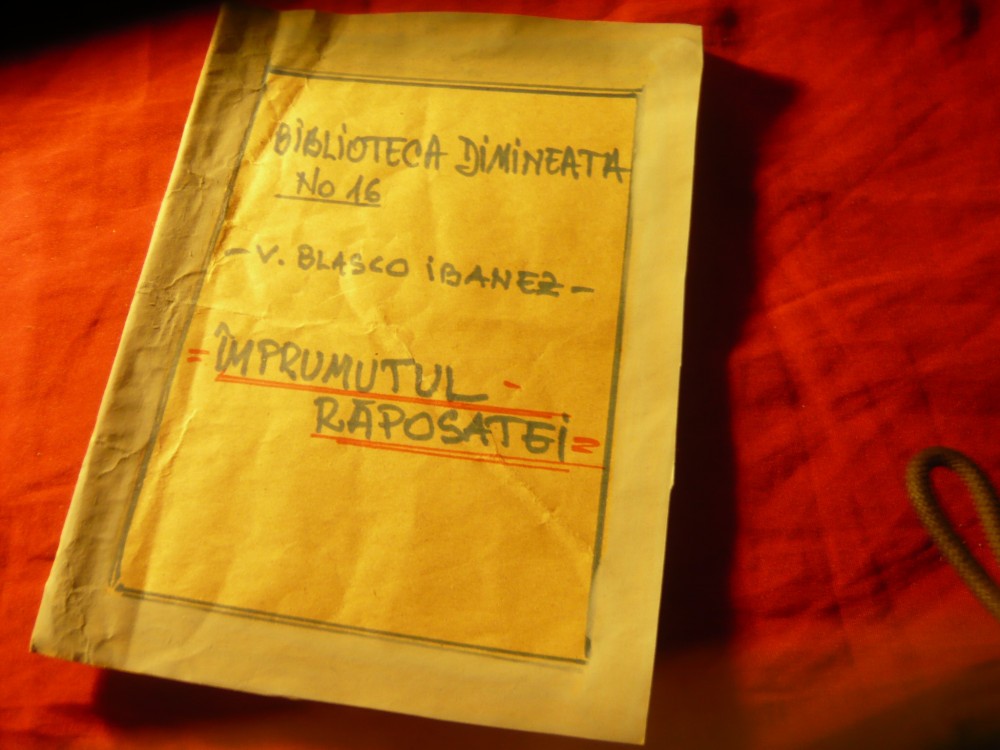 BIBLIOTECA DIMINEATA
No 16
- V. BLASCO IBANEZ -
= ÎMPRUMUTUL -
RĂPOSATEI =